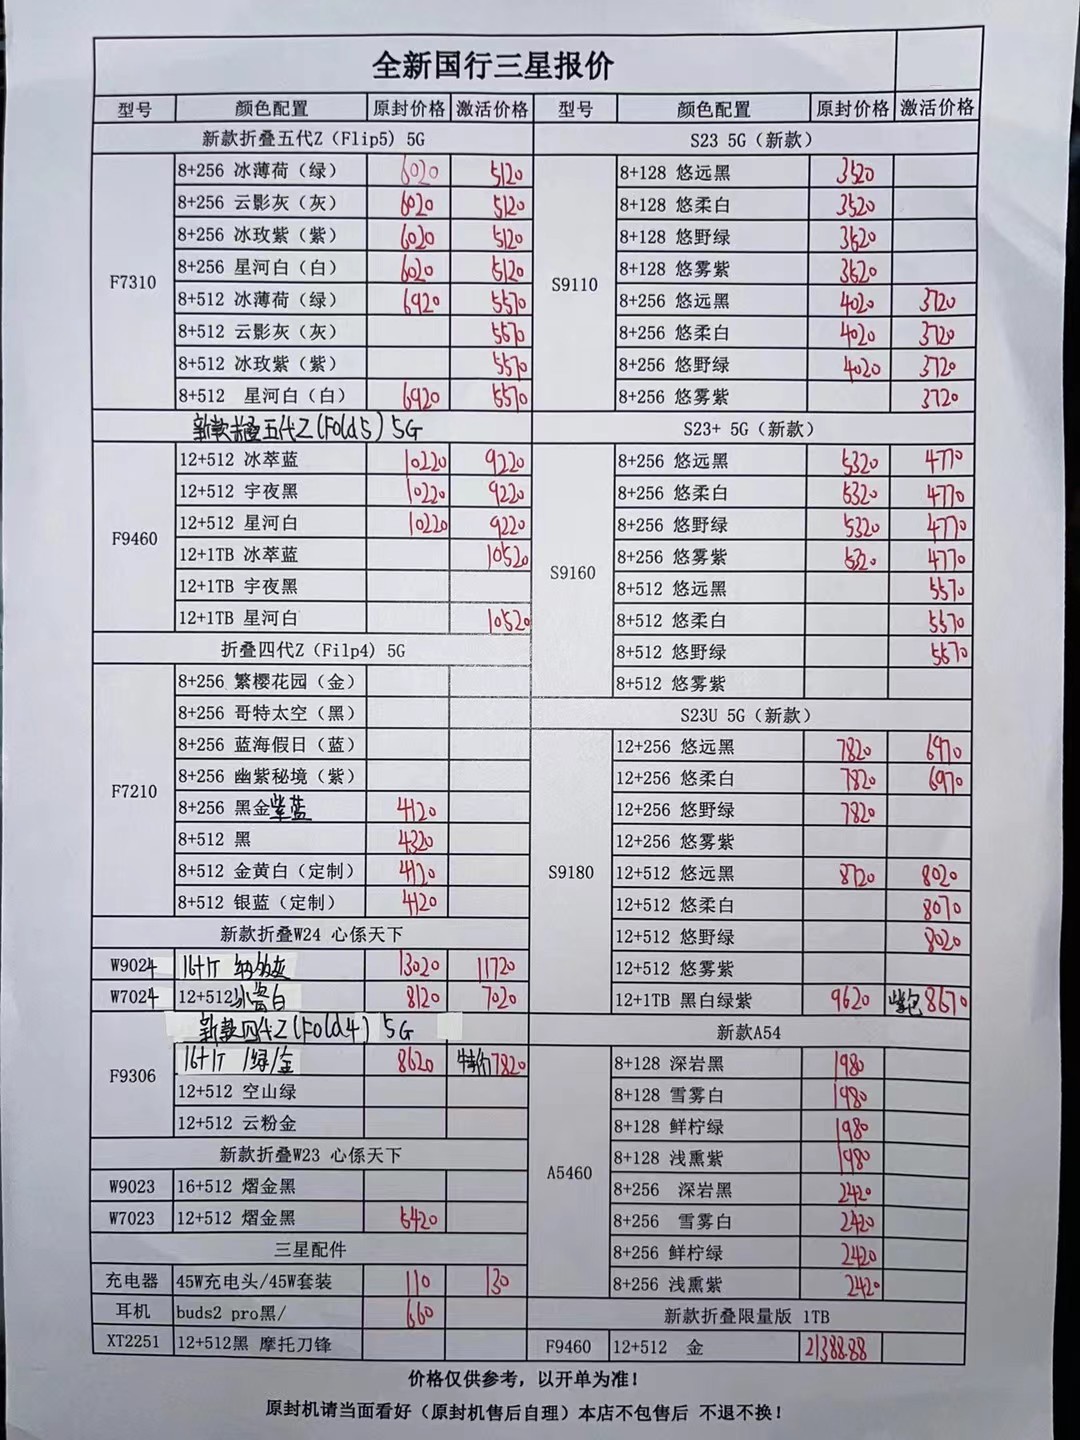 全新国行三星报价
型号 颜色配置 原封价格 激活价格
新款折叠五代Z（Flip5）5G
F7310
8+256 冰薄荷（绿） 6020 5120
8+256 云影灰（灰） 6020 5120
8+256 冰玫紫（紫） 6020 5120
8+256 星河白（白） 6020 5120
8+512 冰薄荷（绿） 6920 5570
8+512 云影灰（灰） 5570
8+512 冰玫紫（紫） 5570
8+512 星河白（白） 6920 5570
新款折叠五代Z(Fold5) 5G
F9460
12+512 冰萃蓝 10220 9220
12+512 宇夜黑 10220 9220
12+512 星河白 10220 9220
12+1TB 冰萃蓝 10520
12+1TB 宇夜黑
12+1TB 星河白 10520
折叠四代Z（Filp4）5G
F7210
8+256 繁樱花园（金）
8+256 哥特太空（黑）
8+256 蓝海假日（蓝）
8+256 幽紫秘境（紫）
8+256 黑金紫蓝 4120
8+512 黑 4320
8+512 金黄白（定制） 4120
8+512 银蓝（定制） 4120
新款折叠W24 心係天下
W9024 16+1T 13020 11720
W7024 12+512 白 8120 7020
新款四代Z(Fold4) 5G
F9306
16+1T 绿/金 8620 特价7820
12+512 空山绿
12+512 云粉金
新款折叠W23 心係天下
W9023 16+512 熠金黑
W7023 12+512 熠金黑 5420
三星配件
充电器 45W充电头/45W套装 110 130
耳机 buds2 pro黑/ 660
XT2251 12+512黑 摩托刀锋
型号 颜色配置 原封价格 激活价格
S23 5G（新款）
S9110
8+128 悠远黑 3520
8+128 悠柔白 3520
8+128 悠野绿 3520
8+128 悠雾紫 3520
8+256 悠远黑 4020 3720
8+256 悠柔白 4020 3720
8+256 悠野绿 4020 3720
8+256 悠雾紫 3720
S23+ 5G（新款）
S9160
8+256 悠远黑 5320 4770
8+256 悠柔白 5320 4770
8+256 悠野绿 5320 4770
8+256 悠雾紫 5320 4770
8+512 悠远黑 5570
8+512 悠柔白 5570
8+512 悠野绿 5570
8+512 悠雾紫
S23U 5G（新款）
S9180
12+256 悠远黑 7820 6970
12+256 悠柔白 7820 6970
12+256 悠野绿 7820
12+256 悠雾紫
12+512 悠远黑 8720 8020
12+512 悠柔白 8070
12+512 悠野绿 8020
12+512 悠雾紫
12+1TB 黑白绿紫 9620 紫色8670
新款A54
A5460
8+128 深岩黑 1980
8+128 雪雾白 1980
8+128 鲜柠绿 1980
8+128 浅熏紫 1980
8+256 深岩黑 2420
8+256 雪雾白 2420
8+256 鲜柠绿 2420
8+256 浅熏紫 2420
新款折叠限量版 1TB
F9460 12+512 金 21388.88
价格仅供参考，以开单为准！
原封机请当面看好（原封机售后自理）本店不包售后 不退不换！